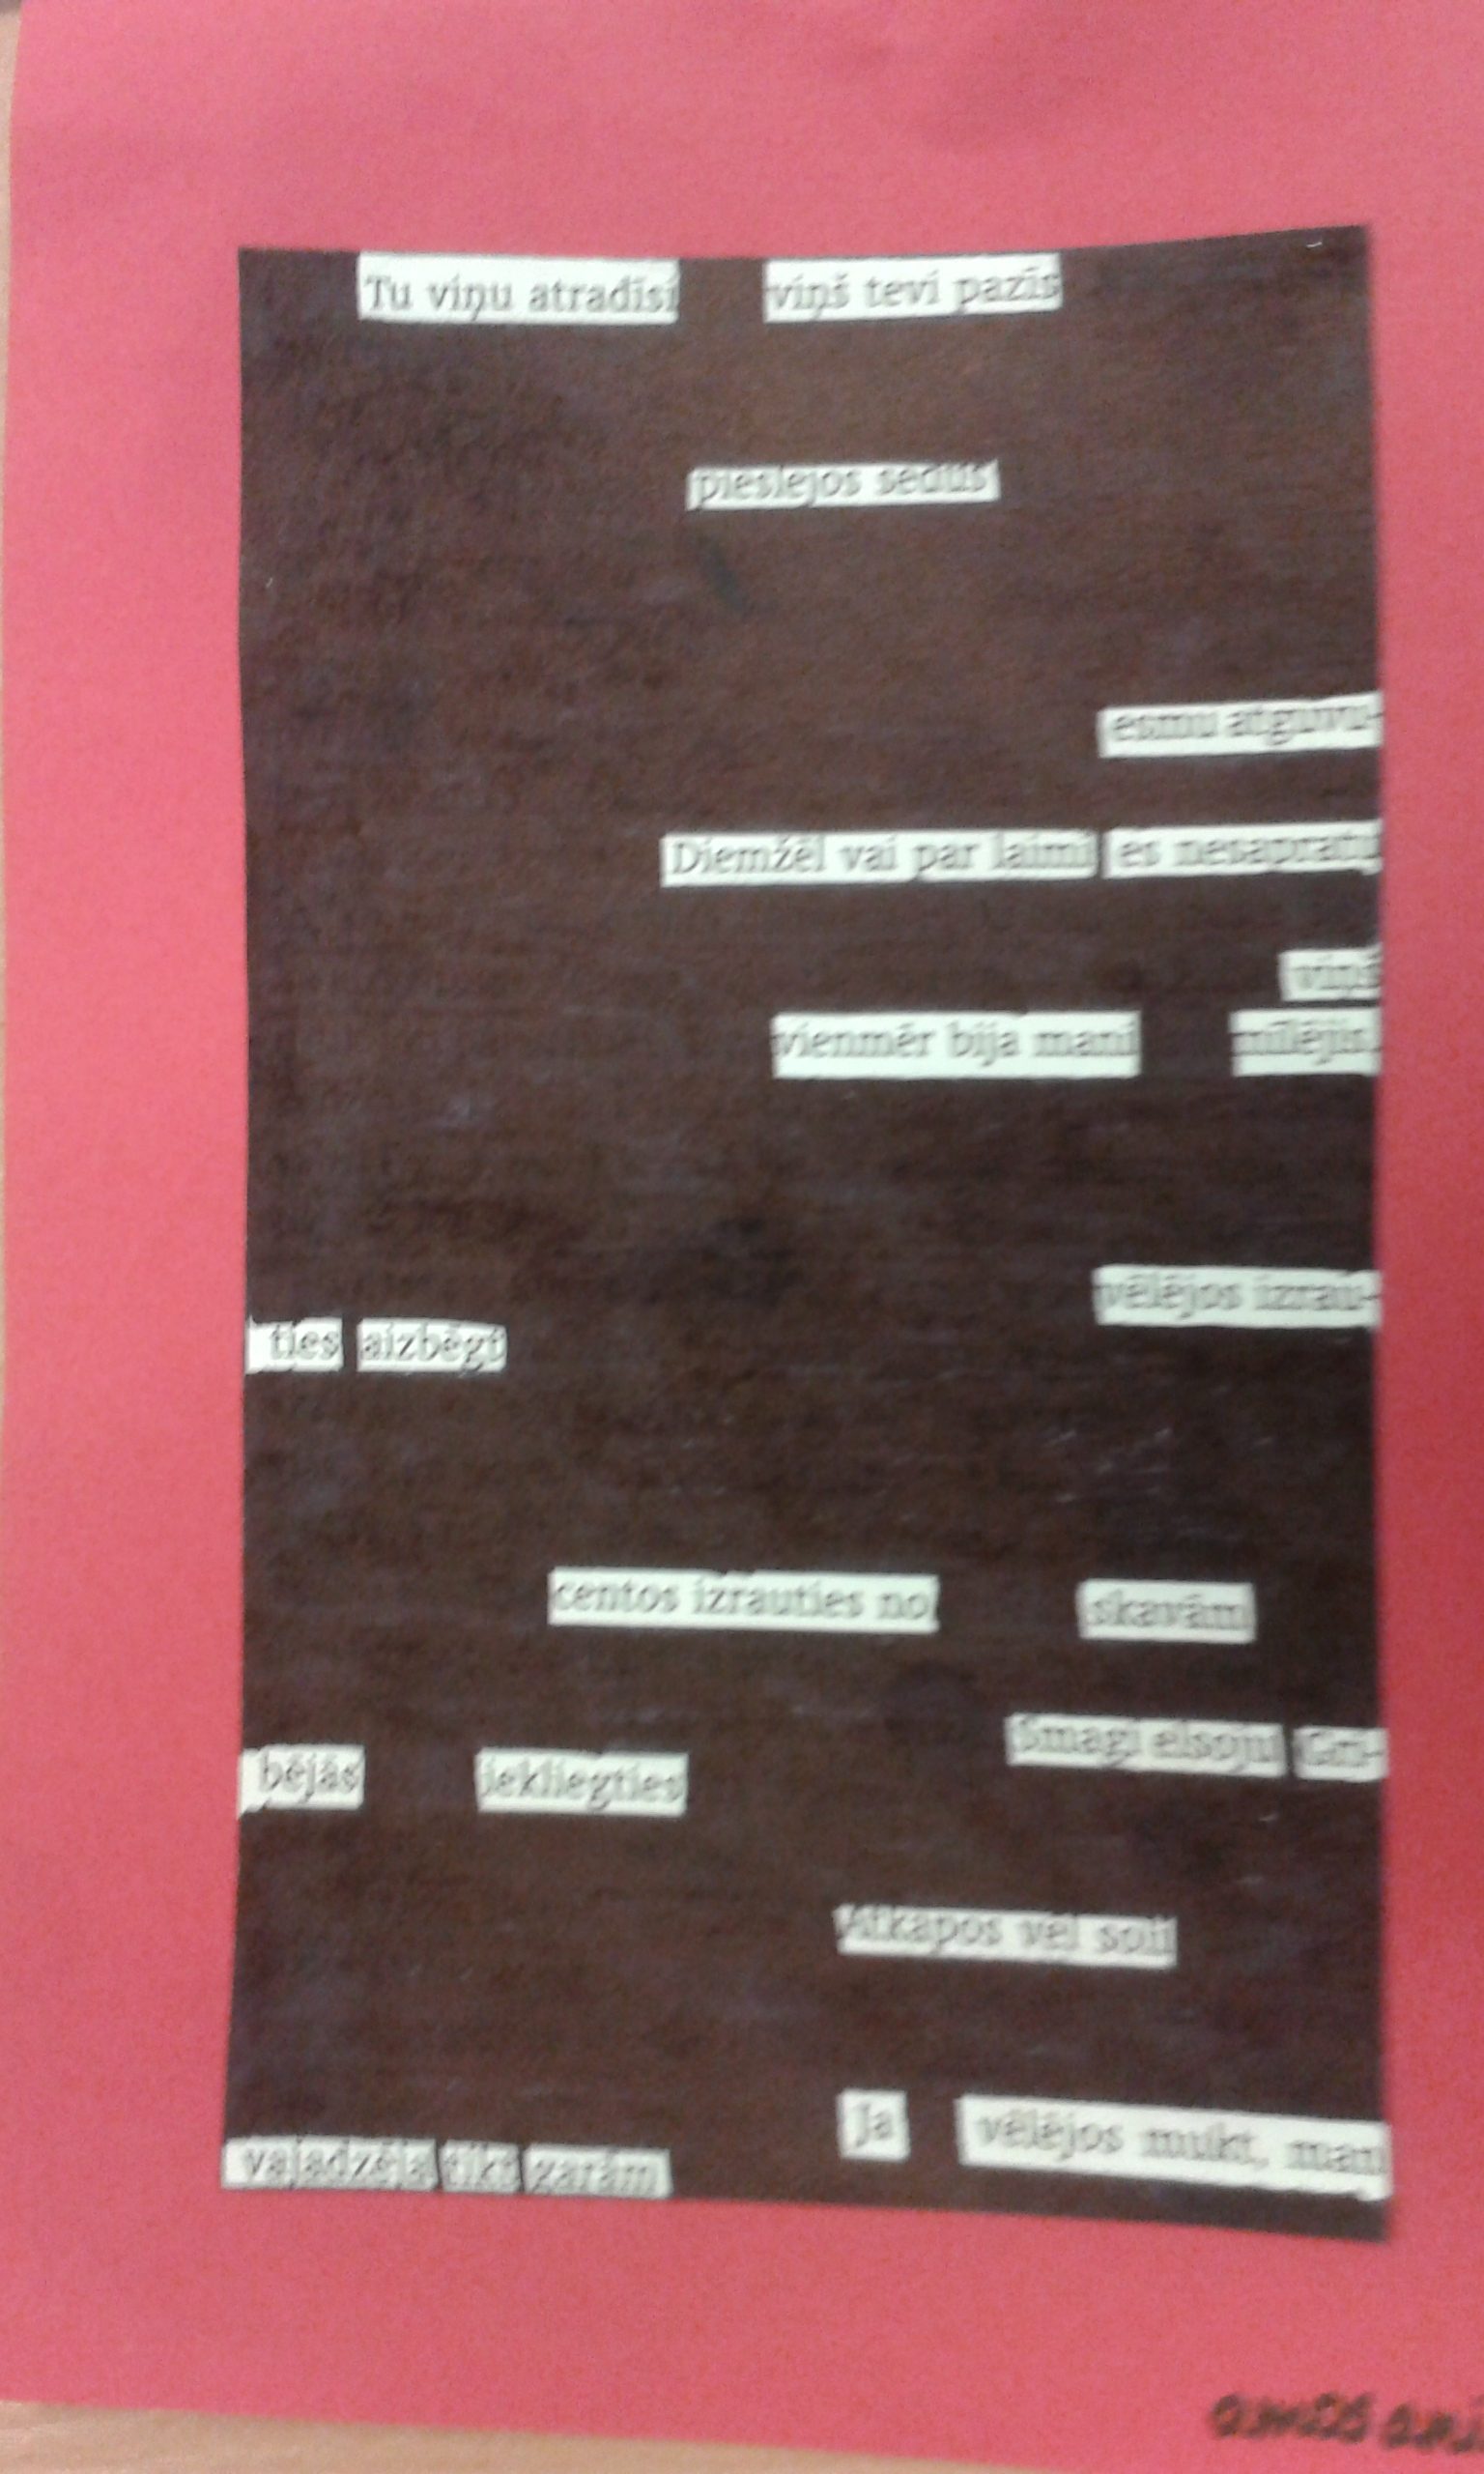 Tu viņu atradīsi viņš tevi pazīs
pieslejos sēdus
esmu atguvu-
Diemžēl vai par laimi es nesapratu
viņš
vienmēr bija mani mīlējis
vēlējos izrau-
ties aizbēgt
centos izrauties no skavām
Smagi elsoju Gri-
bējās iekliegties
Atkāpos vēl soli
Ja vēlējos mukt, man
vajadzēja tikt garām